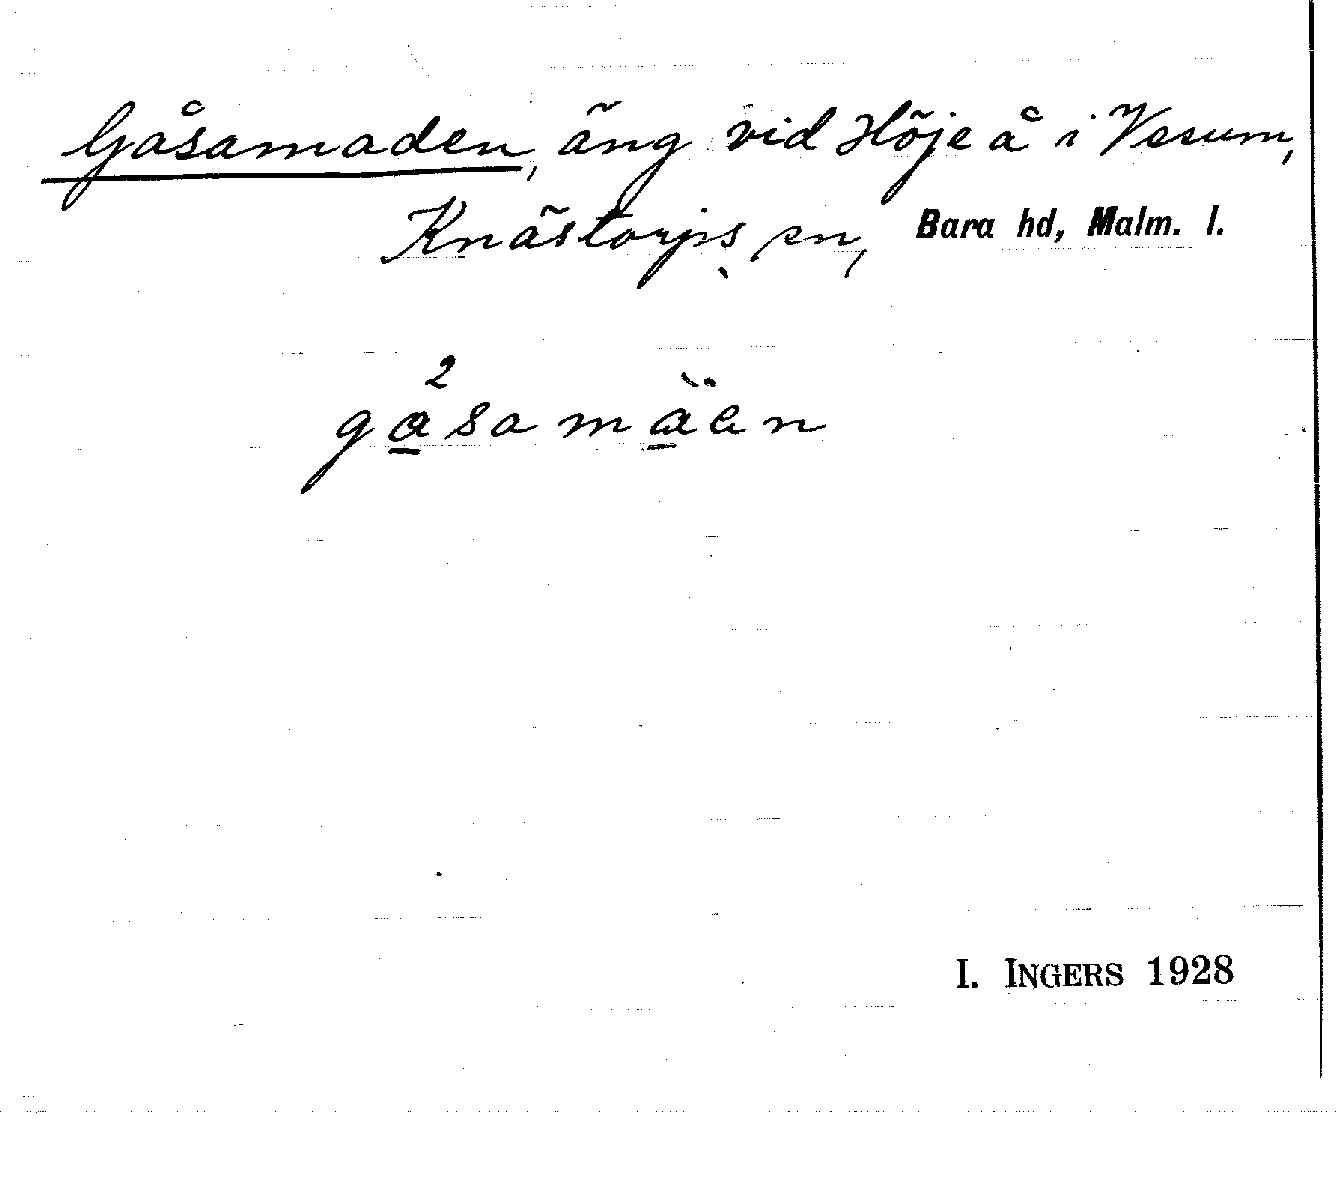 Gåsamaden, äng vid Höje å i Vesum,
Knästorps sn, Bara hd, Malm. l.
2
gåsamäen
I. INGERS 1928